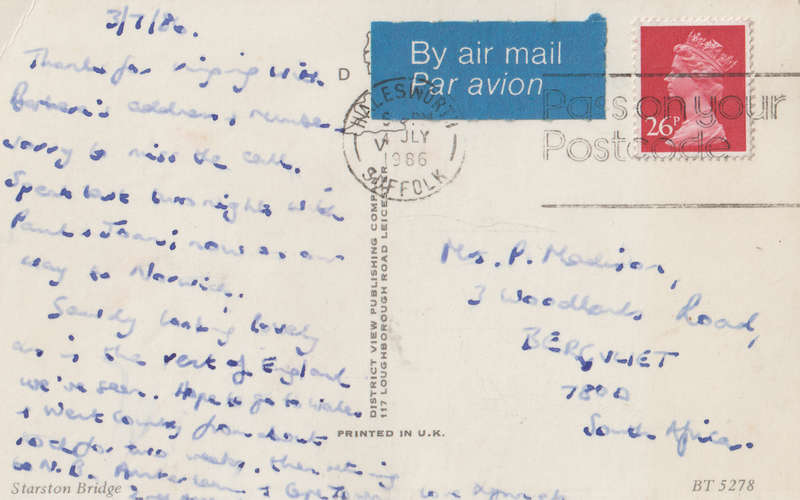 3/7/86.
Thanks for ringing with
Barbara's address & number
sorry to miss the call.
Spent last two nights with
Paul & Joan; now on our
way to Norwich.
Sandy looking lovely
as is the rest of England
we've seen. Hope to go to Wales
& West Country from about
for two weeks, then
to N.B. Amsterdam &
Starston Bridge
D
By air mail
Par avion
HALESWORTH
SUFFOLK
4 JLY
1986
Pass on your
Postcode
26P
DISTRICT VIEW PUBLISHING
117 LOUGHBOROUGH ROAD LEICESTER
PRINTED IN U.K.
Mrs. P. Madison,
3 Woodlands Road,
BERGVLIET
7800
South Africa.
BT 5278